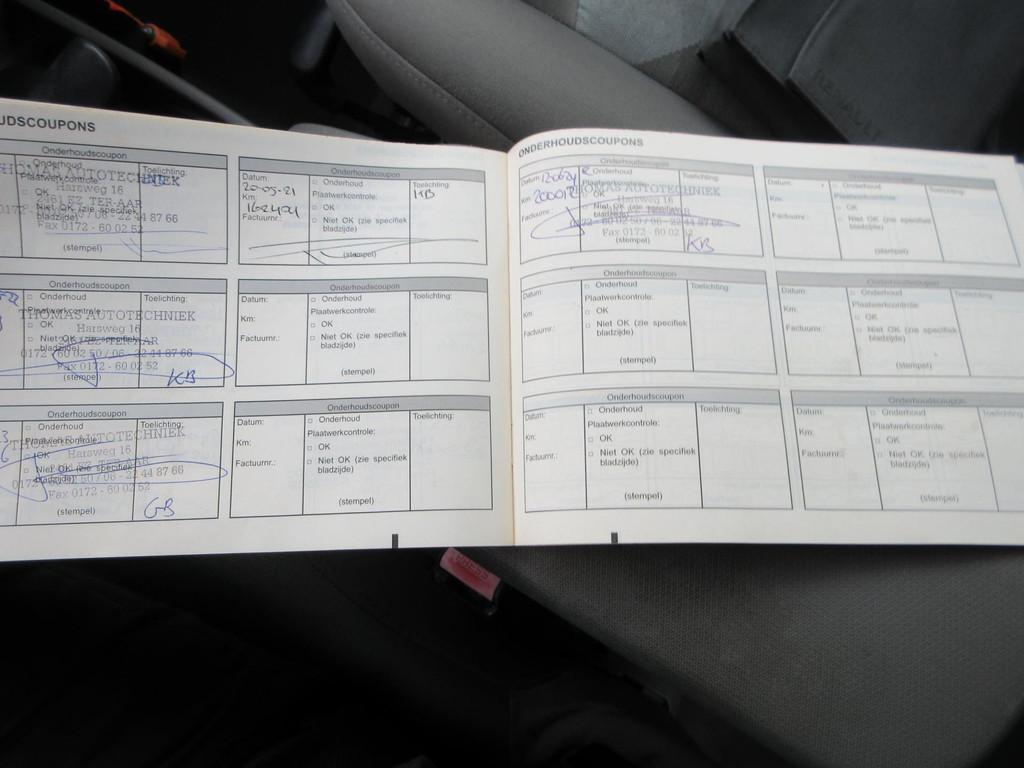 UDSCOUPONS
Onderhoudscoupon
Onderhoud
Toelichting:
THOMAS AUTOTECHNIEK
Plaatwerkcontrole
Harsweg 16
OK
2461 EZ TER-AAR
Niet OK (zie specifiek
bladzijde)
0172 - 60 02 50 / 06 - 22 44 87 66
Fax 0172 - 60 02 52
(stempel)
Onderhoudscoupon
Datum:
20-05-21
Km:
162424
Factuurnr.:
Onderhoud
Plaatwerkcontrole:
OK
Niet OK (zie specifiek
bladzijde)
(stempel)
Toelichting:
Onderhoudscoupon
Onderhoud
Toelichting:
Plaatwerkcontrole
THOMAS AUTOTECHNIEK
OK
Harsweg 16
Niet OK (zie specifiek
bladzijde)
EZ TER-AAR
0172 - 60 02 50 / 06 - 22 44 87 66
Fax 0172 - 60 02 52
(stempel)
KB
Onderhoudscoupon
Datum:
Km:
Factuurnr.:
Onderhoud
Plaatwerkcontrole:
OK
Niet OK (zie specifiek
bladzijde)
(stempel)
Toelichting:
Onderhoudscoupon
Onderhoud
Toelichting:
Plaatwerkcontrole:
THOMAS AUTOTECHNIEK
OK
Harsweg 16
Niet OK (zie specifiek
bladzijde)
EZ TER-AAR
0172 - 60 02 50 / 06 - 22 44 87 66
Fax 0172 - 60 02 52
(stempel)
GB
Onderhoudscoupon
Datum:
Km:
Factuurnr.:
Onderhoud
Plaatwerkcontrole:
OK
Niet OK (zie specifiek
bladzijde)
(stempel)
Toelichting:
ONDERHOUDSCOUPONS
Onderhoudscoupon
Datum:
Km:
Factuurnr.:
Onderhoud
Toelichting:
THOMAS AUTOTECHNIEK
Harsweg 16
Niet OK (zie specifiek
bladzijde)
0172 - 60 02 50 / 06 - 22 44 87 66
Fax 0172 - 60 02 52
(stempel)
KB
Onderhoudscoupon
Datum:
Km:
Factuurnr.:
Onderhoud
Plaatwerkcontrole
OK
Niet OK (zie specifiek
bladzijde)
(stempel)
Toelichting:
Onderhoudscoupon
Datum:
Km:
Factuurnr.:
Onderhoud
Plaatwerkcontrole:
OK
Niet OK (zie specifiek
bladzijde)
(stempel)
Toelichting:
Onderhoudscoupon
Datum:
Km:
Factuurnr.:
Onderhoud
Plaatwerkcontrole
OK
Niet OK (zie specifiek
bladzijde)
(stempel)
Toelichting:
Onderhoudscoupon
Datum:
Km:
Factuurnr.:
Onderhoud
Plaatwerkcontrole:
OK
Niet OK (zie specifiek
bladzijde)
(stempel)
Toelichting:
Onderhoudscoupon
Datum:
Km:
Factuurnr.:
Onderhoud
Plaatwerkcontrole:
OK
Niet OK (zie specifiek
bladzijde)
(stempel)
Toelichting
RENAULT
PRESS